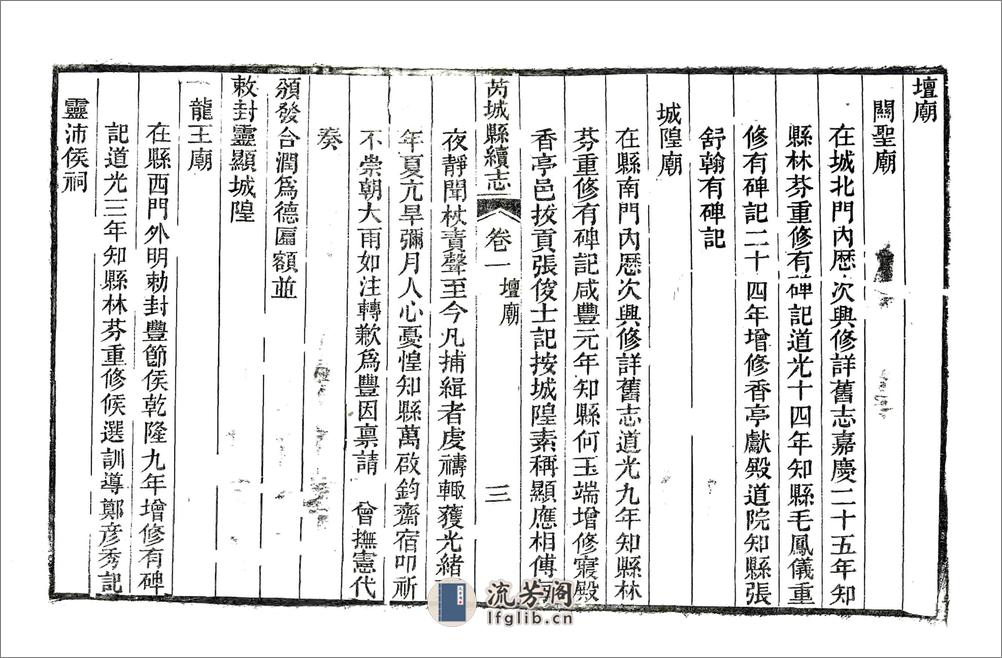 壇廟
關聖廟
在城北門內歷次興修詳舊志嘉慶二十五年知
縣林芬重修有碑記道光十四年知縣毛鳳儀重
修有碑記二十四年增修香亭獻殿道院知縣張
舒翰有碑記
城隍廟
在縣南門內歷次興修詳舊志道光九年知縣林
芬重修有碑記咸豐元年知縣何玉端增修寢殿
香亭邑拔貢張俊士記按城隍素稱顯應相傳
芮城縣續志 卷一 壇廟 三
夜靜聞杖責聲至今凡捕緝者虔禱輒獲光緒
年夏亢旱彌月人心憂惶知縣萬啟鈞齋宿叩祈
不崇朝大雨如注轉歉爲豐因稟請 曾撫憲代
奏
頒發台潤爲德匾額並
敕封靈顯城隍
龍王廟
在縣西門外明勅封豐節侯乾隆九年增修有碑
記道光三年知縣林芬重修候選訓導鄭彦秀記
靈沛侯祠
流芳閣
lfglib.cn